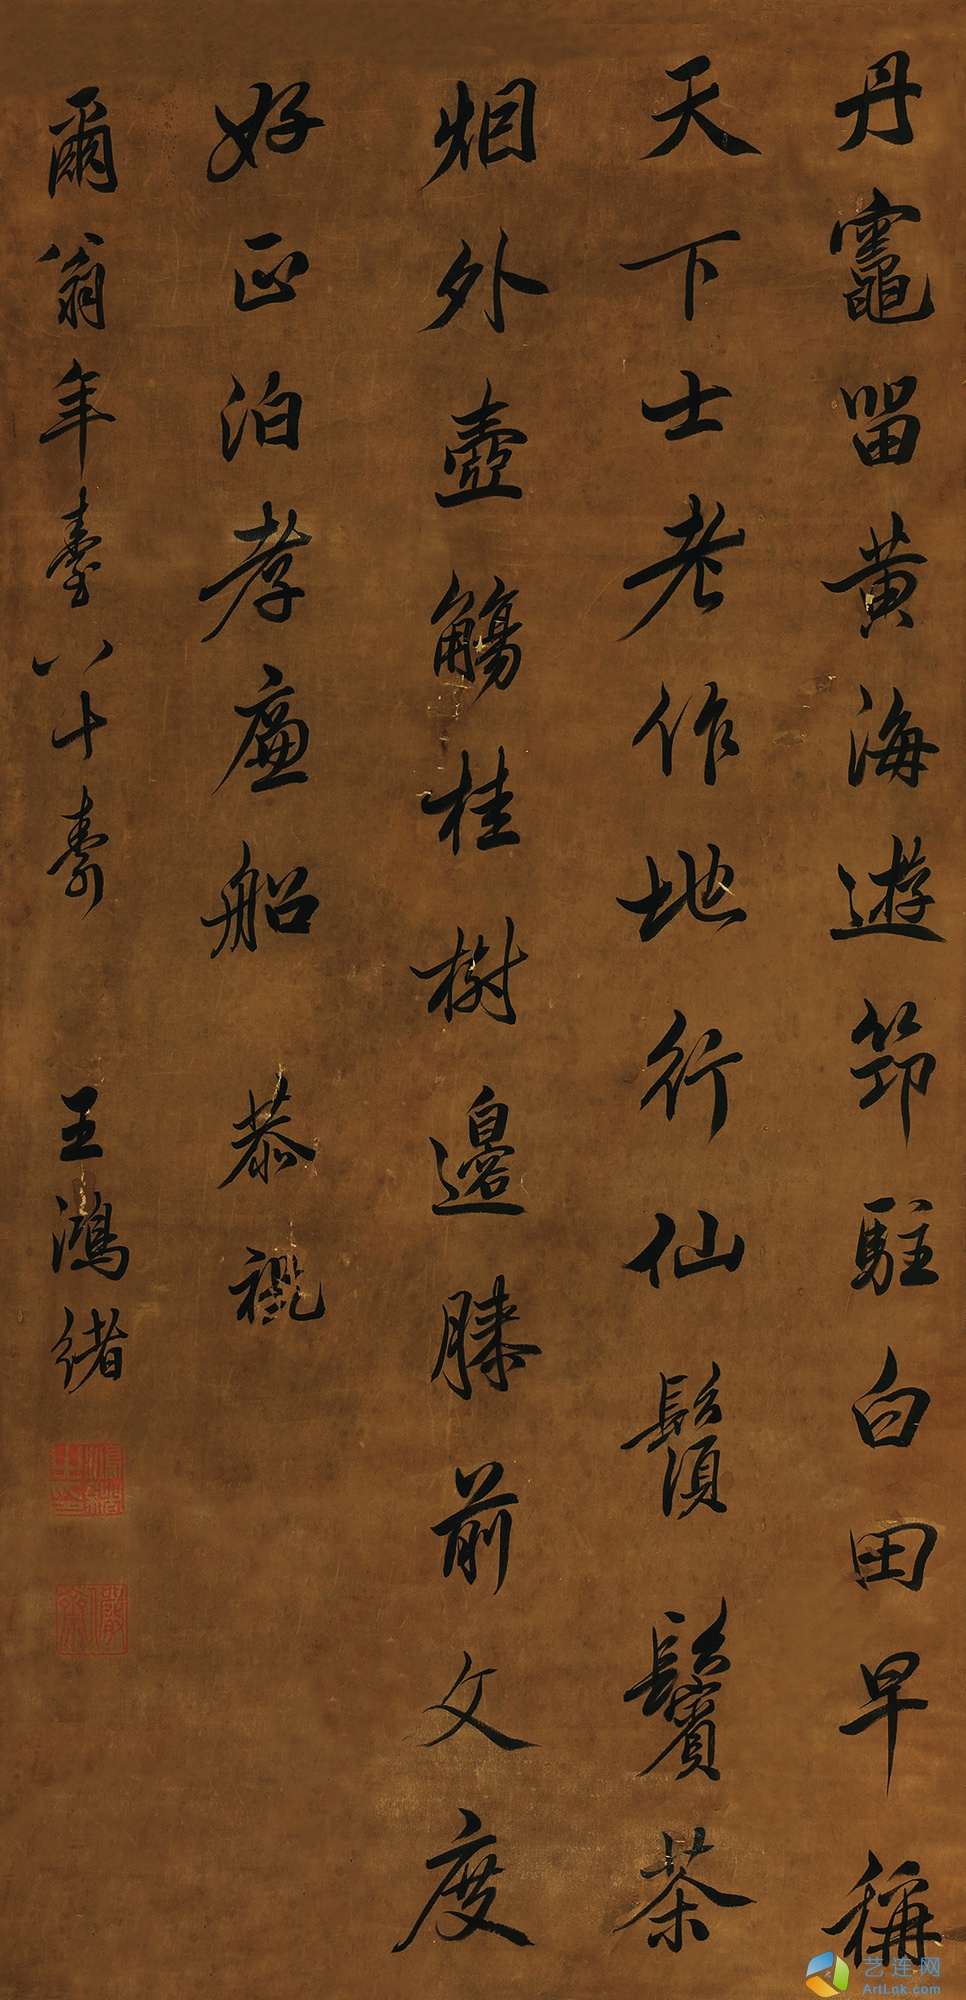 丹竈留黄海遊筇駐白田早稱
天下士老作地行仙鬚鬢茶
烟外壺觴桂樹邊膝前文度
好正泊孝廉船 恭祝
爾翁年臺八十壽 王鴻緒
艺连网
ArtLnk.com